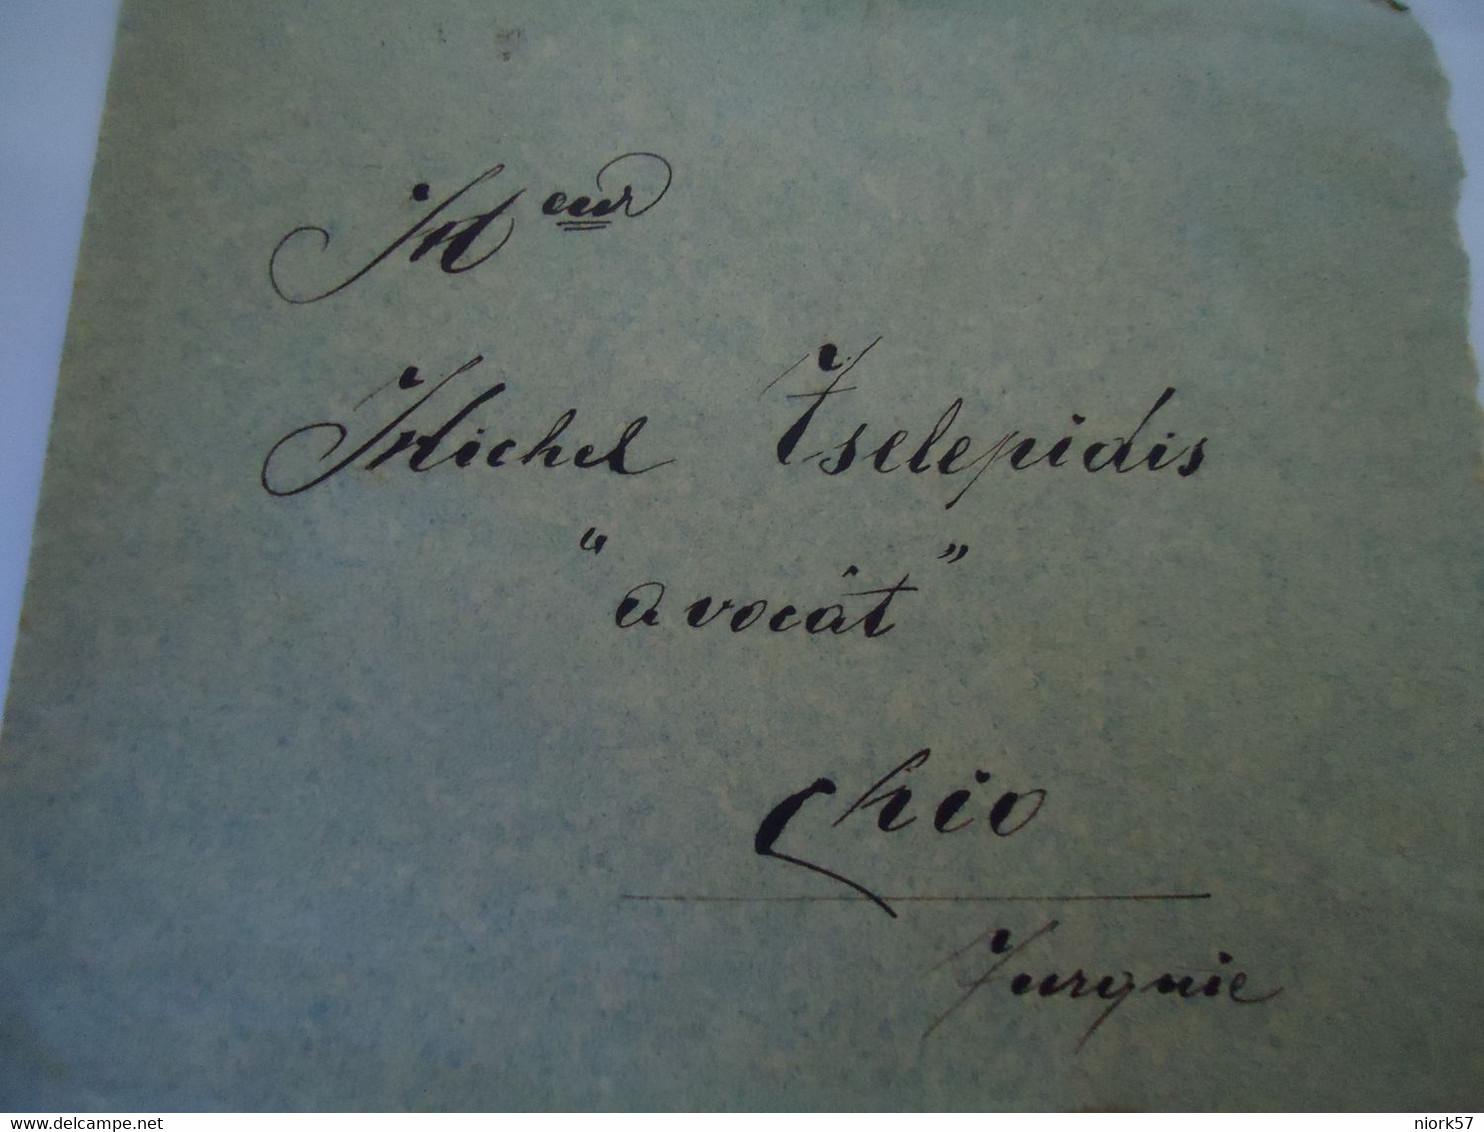 M^eur
Michel Tselepidis
" avocât "
Chio
Turquie
delcampe.net
niork57